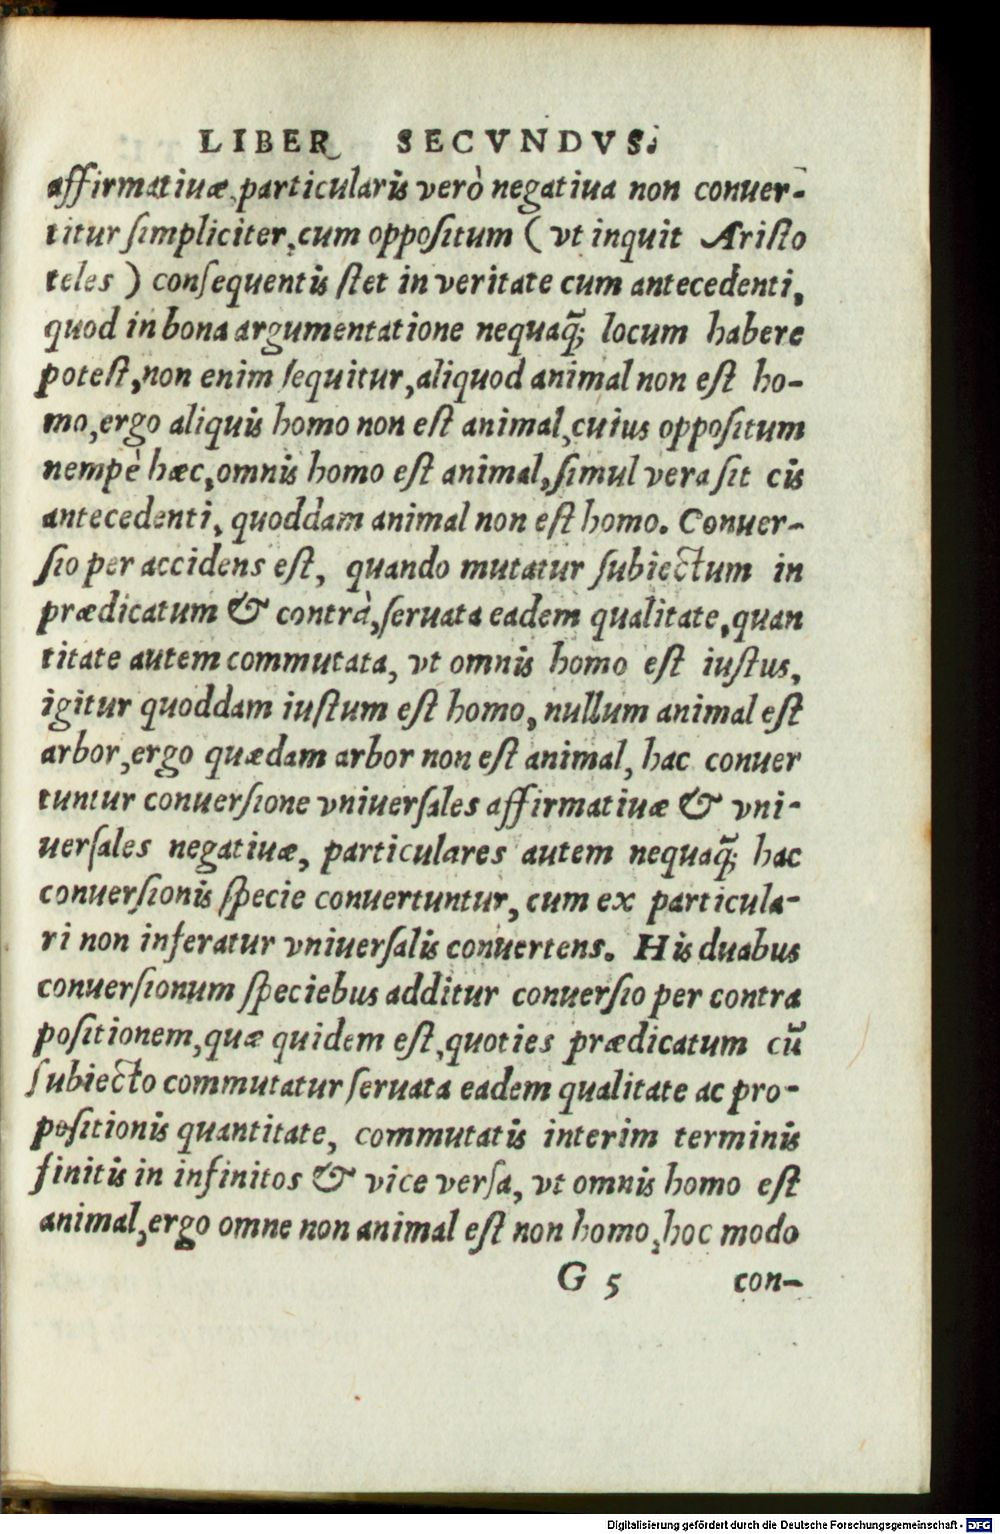 LIBER SECVNDVS.
affirmatiuæ, particularis verò negatiua non conuer-
titur simpliciter, cum oppositum ( vt inquit Aristo
teles ) consequentis stet in veritate cum antecedenti,
quod in bona argumentatione nequaq̃; locum habere
potest, non enim sequitur, aliquod animal non est ho-
mo, ergo aliquis homo non est animal, cuius oppositum
nempè hæc, omnis homo est animal, simul vera sit cū
antecedenti, quoddam animal non est homo. Conuer-
sio per accidens est, quando mutatur subiectum in
prædicatum & contrà, seruata eadem qualitate, quan
titate autem commutata, vt omnis homo est iustus,
igitur quoddam iustum est homo, nullum animal est
arbor, ergo quædam arbor non est animal, hac conuer
tuntur conuersione vniuersales affirmatiuæ & vni-
uersales negatiuæ, particulares autem nequaq̃; hac
conuersionis specie conuertuntur, cum ex particula-
ri non inferatur vniuersalis conuertens. His duabus
conuersionum speciebus additur conuersio per contra
positionem, quæ quidem est, quoties prædicatum cū
subiecto commutatur seruata eadem qualitate ac pro-
positionis quantitate, commutatis interim terminis
finitis in infinitos & vice versa, vt omnis homo est
animal, ergo omne non animal est non homo, hoc modo
G 5 con-
Digitalisierung gefördert durch die Deutsche Forschungsgemeinschaft - DFG